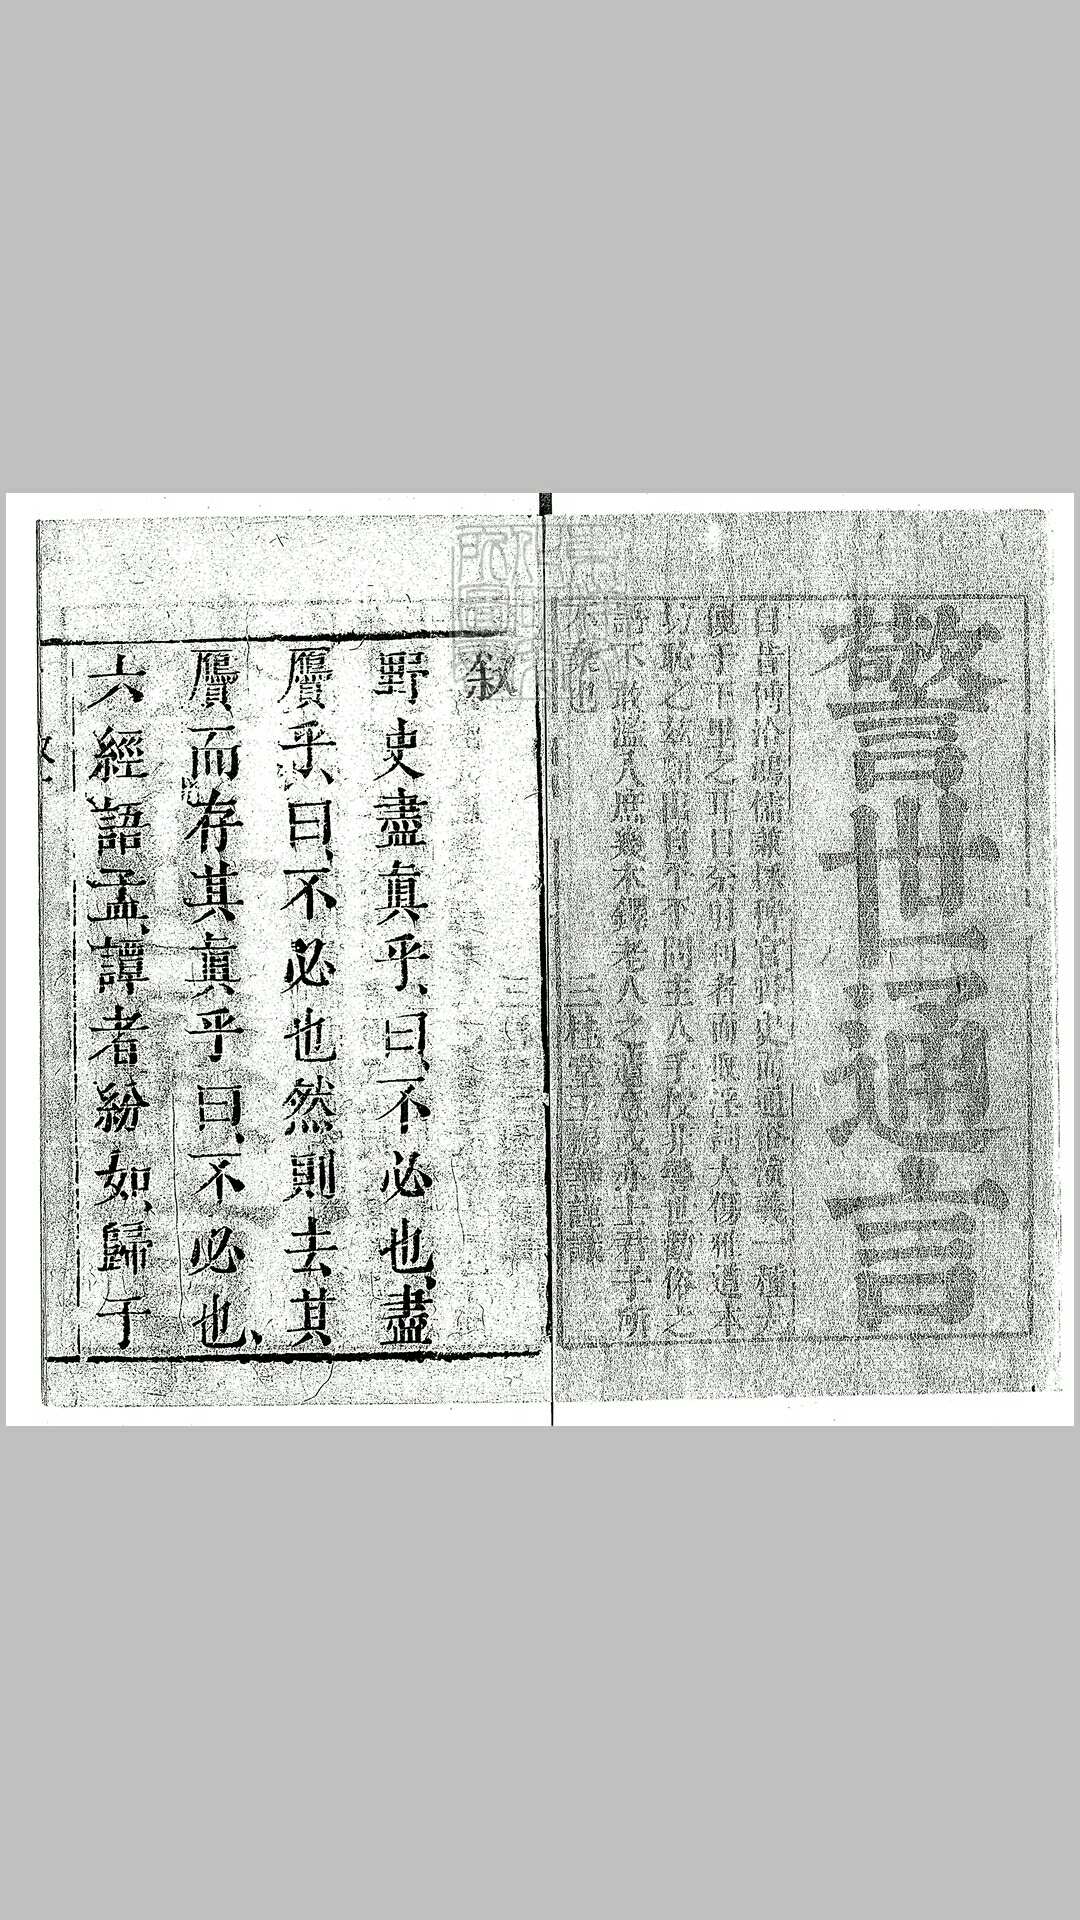 警世通言
自昔博洽鴻儒兼採稗官野史而通俗演義一種尤
便于下里之耳目奈射利者而取淫詞大傷雅道本
坊恥之茲刻出自平平閣主人手授非警世勸俗之
語不敢濫入庶幾木鐸老人之遺意或亦士君子所
不棄也　三桂堂王振華謹識
叙
野史盡眞乎、曰、不必也、盡
贋乎、曰、不必也然則去其
贋而存其眞乎曰、不必也、
六經語孟、譚者紛如、歸于